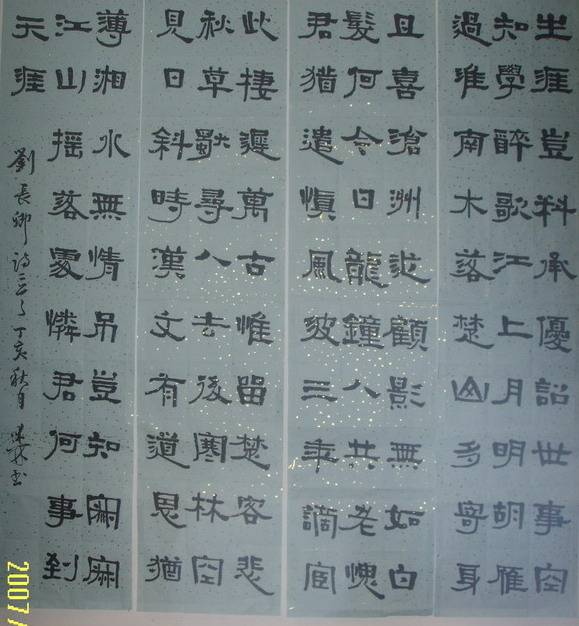 生涯豈料承優詔世事空
知學醉歌江上月明胡雁
過淮南木落楚山多寄身
且喜滄洲近顧影無如白
髮何今日龍鐘人共老愧
君猶遣慎風波三年謫宦
此棲遲萬古惟留楚客悲
秋草獨尋人去後寒林空
見日斜時漢文有道恩猶
薄湘水無情吊豈知寂寂
江山搖落處憐君何事到
天涯
劉長卿詩 丁亥秋月
2007/